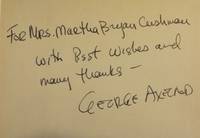 For Mrs. Martha Bryan Cushman
with Best Wishes and
many thanks —
GEORGE AXELROD